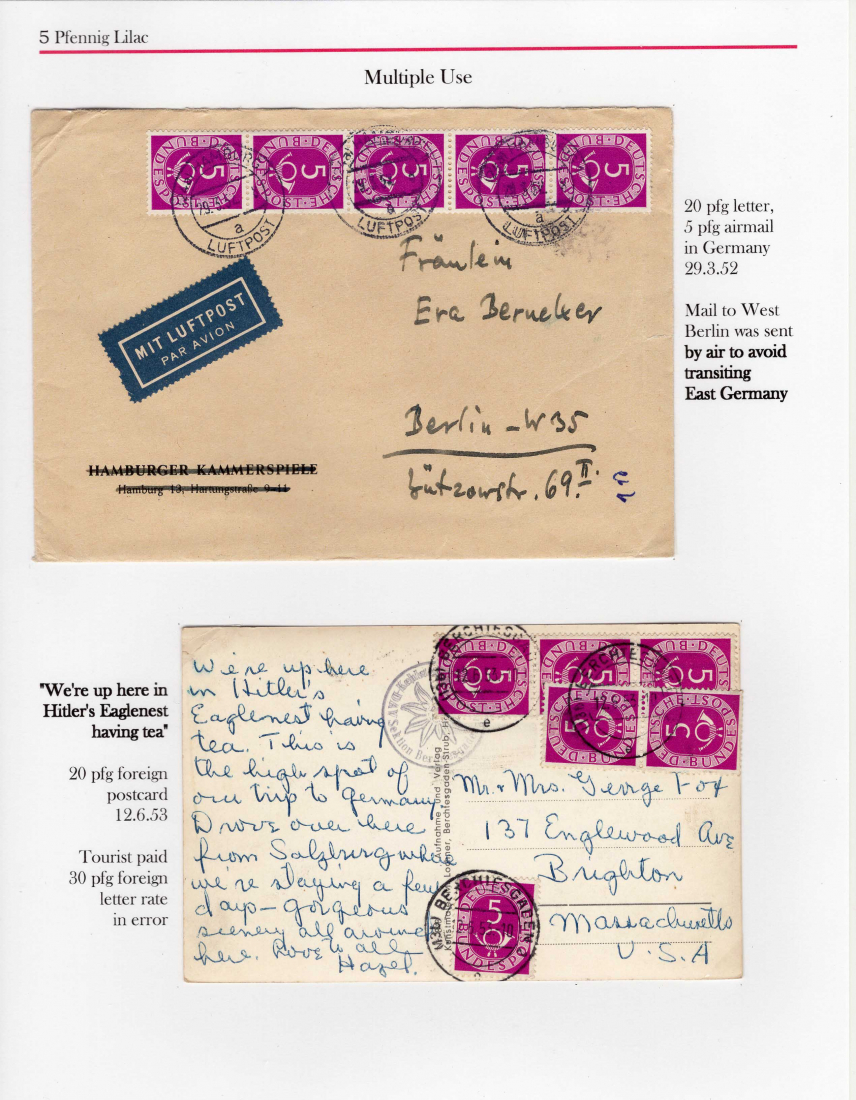 5 Pfennig Lilac
Multiple Use
5 5 5 5 5
LUFTPOST
LUFTPOST
LUFTPOST
MIT LUFTPOST
PAR AVION
Fräulein
Eva Bernecker
Berlin - W35
Lützowstr. 69. II.
HAMBURGER KAMMERSPIELE
Hamburg 13, Hartungstraße 9-11
20 pfg letter,
5 pfg airmail
in Germany
29.3.52
Mail to West
Berlin was sent
by air to avoid
transiting
East Germany
"We're up here in
Hitler's Eaglenest
having tea"
20 pfg foreign
postcard
12.6.53
Tourist paid
30 pfg foreign
letter rate
in error
We're up here
in Hitler's
Eaglenest having
tea. This is
the high spot of
our trip to Germany
Drove over here
from Salzburg where
we're staying a few
days - gorgeous
scenery all around
here. Love to all
Hazel.
DEUTSCHE BUNDESPOST
5
BERCHTESGADEN
Mr. & Mrs. George Fox
137 Englewood Ave
Brighton
Massachusetts
U.S.A